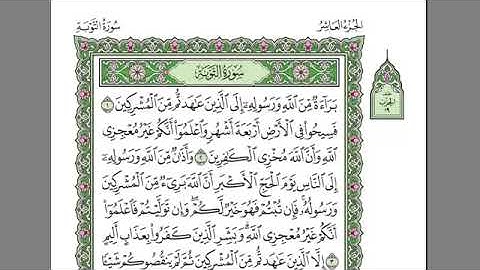 الجزء العاشر
سورة التوبة
سُورَةُ التَّوْبَةِ
بَرَاءَةٌ مِّنَ اللَّهِ وَرَسُولِهِ إِلَى الَّذِينَ عَاهَدتُّم مِّنَ الْمُشْرِكِينَ ١
فَسِيحُوا فِي الْأَرْضِ أَرْبَعَةَ أَشْهُرٍ وَاعْلَمُوا أَنَّكُمْ غَيْرُ مُعْجِزِي
اللَّهِ وَأَنَّ اللَّهَ مُخْزِي الْكَافِرِينَ ٢ وَأَذَانٌ مِّنَ اللَّهِ وَرَسُولِهِ
إِلَى النَّاسِ يَوْمَ الْحَجِّ الْأَكْبَرِ أَنَّ اللَّهَ بَرِيءٌ مِّنَ الْمُشْرِكِينَ
وَرَسُولُهُ فَإِن تُبْتُمْ فَهُوَ خَيْرٌ لَّكُمْ وَإِن تَوَلَّيْتُمْ فَاعْلَمُوا
أَنَّكُمْ غَيْرُ مُعْجِزِي اللَّهِ وَبَشِّرِ الَّذِينَ كَفَرُوا بِعَذَابٍ أَلِيمٍ
٣ إِلَّا الَّذِينَ عَاهَدتُّم مِّنَ الْمُشْرِكِينَ ثُمَّ لَمْ يَنقُصُوكُمْ شَيْئًا